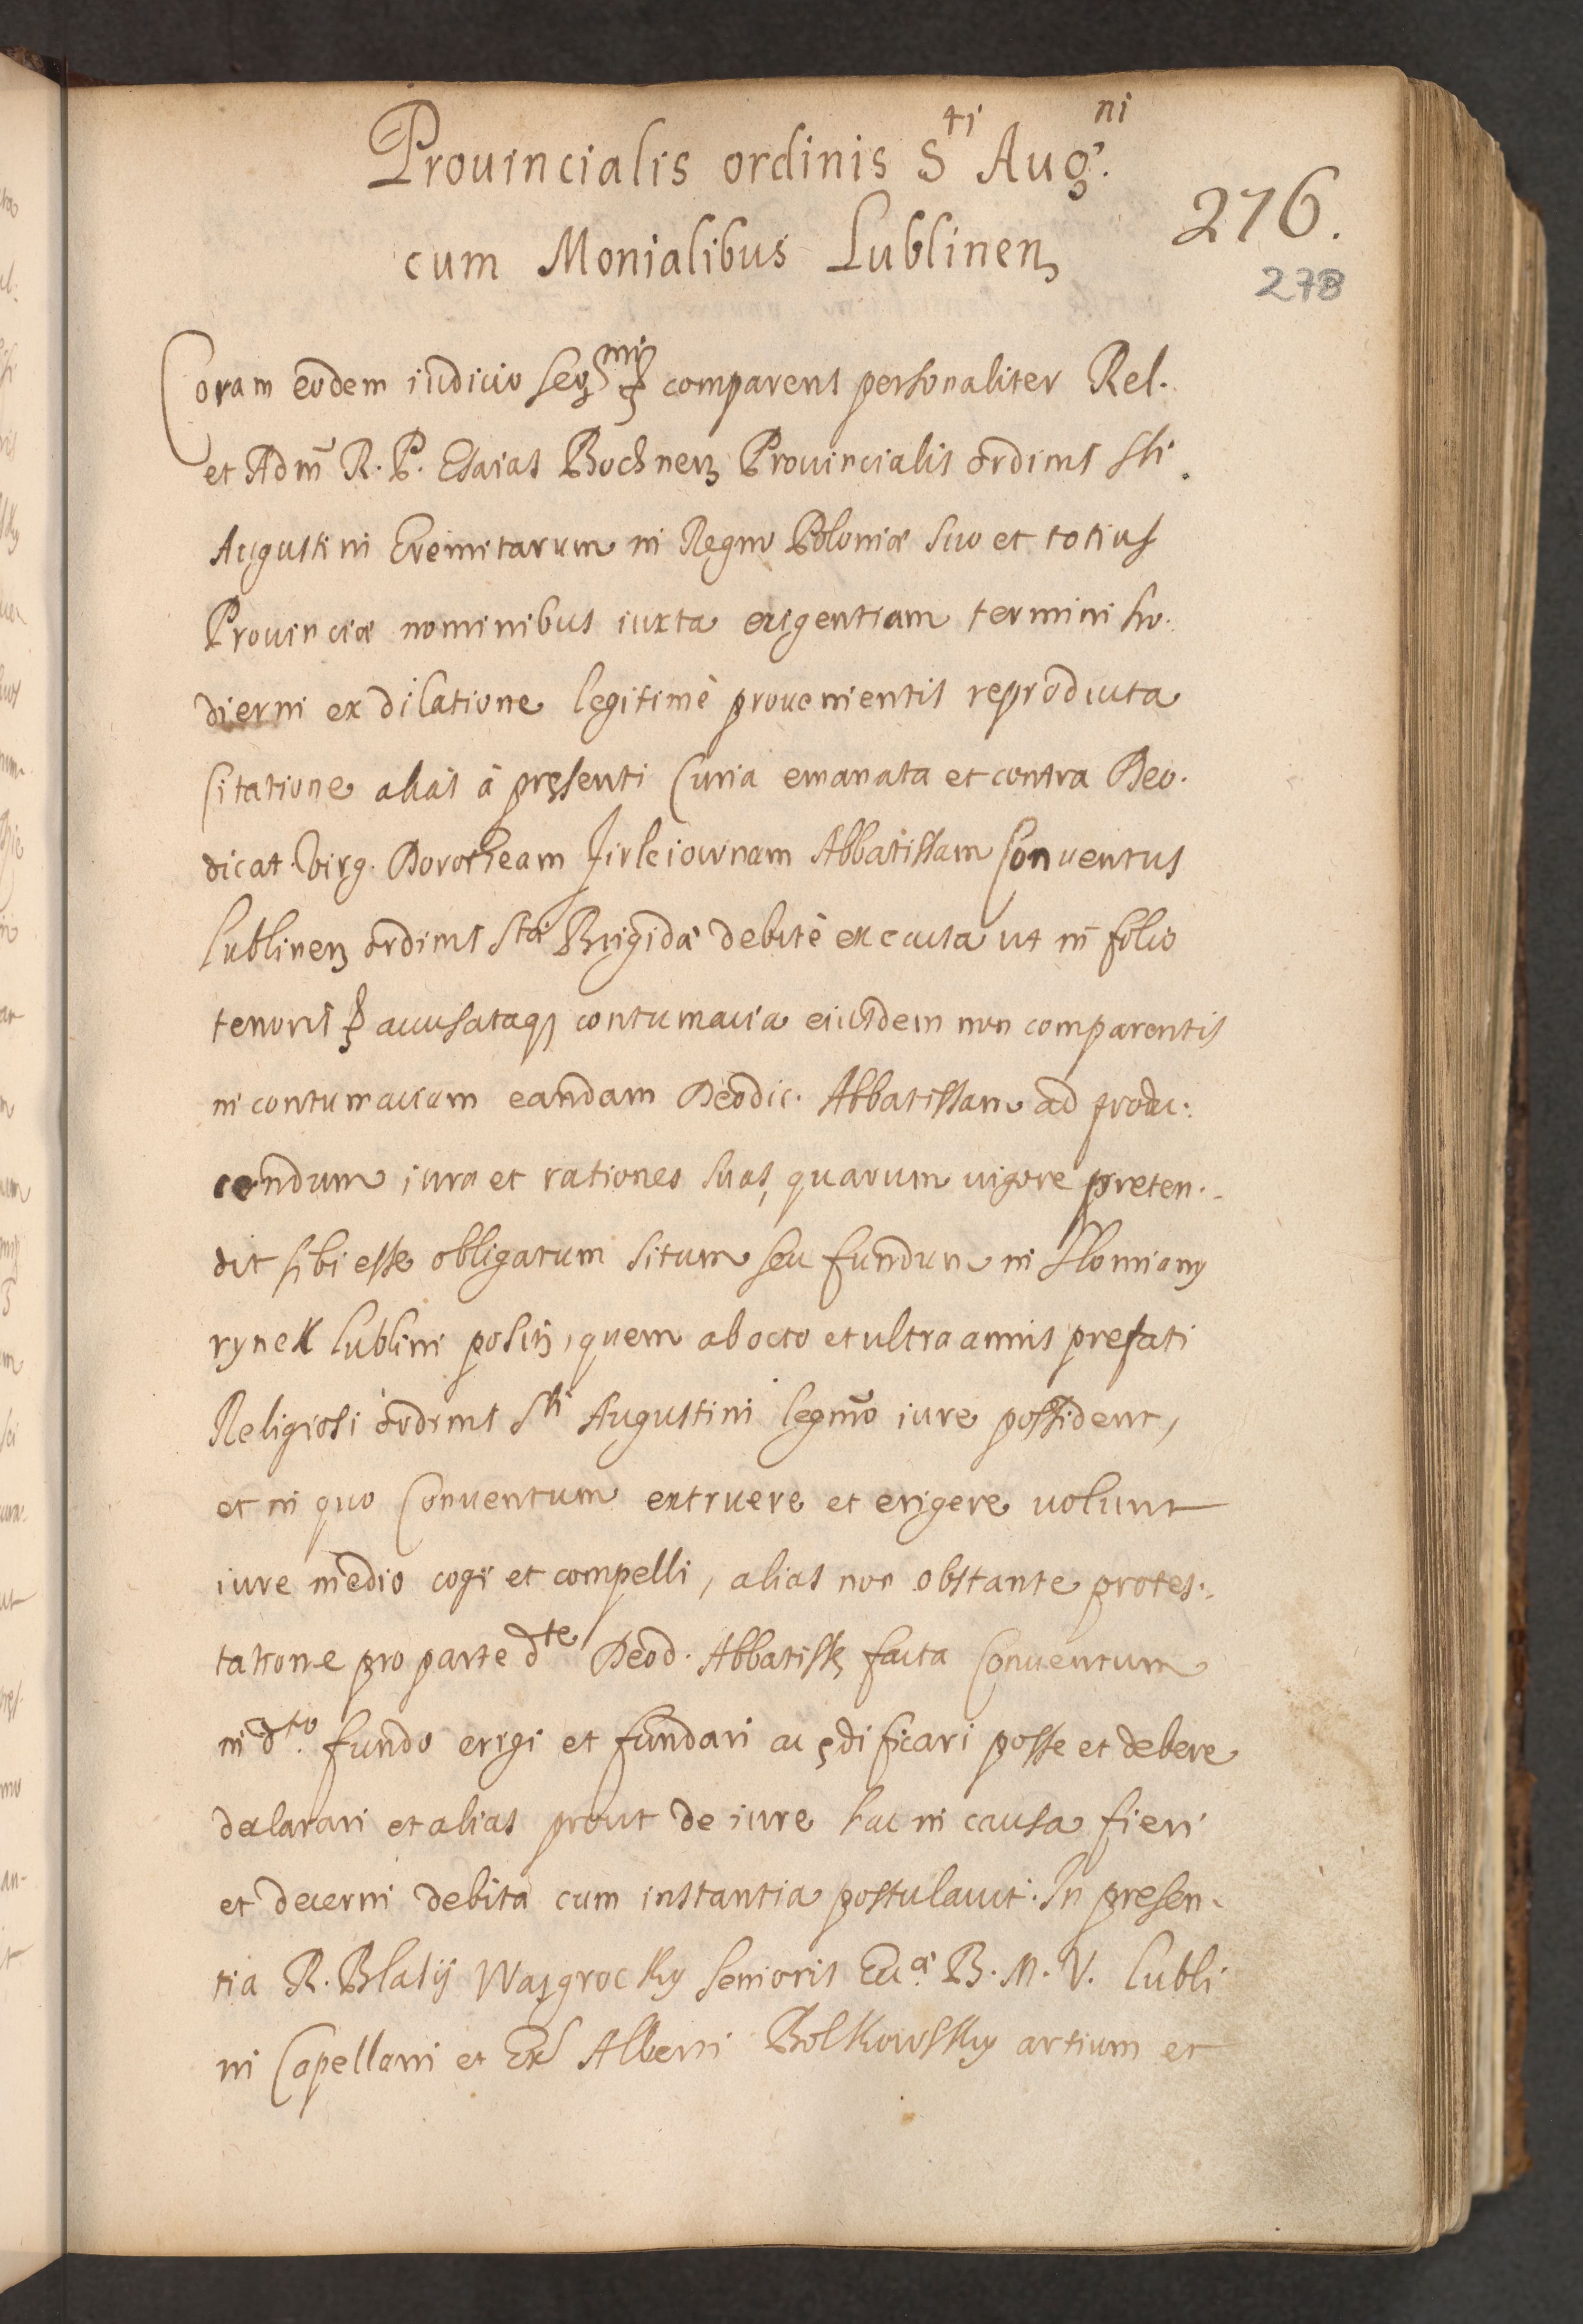 Prouincialis ordinis S^ti Aug^ni.
cum Monialibus Lublinen
276.
278
Coram eodem iudicio comparens personaliter Rel.
et Adm R. P. Esaias Bochnen Prouincialis ordinis Sti
Augustini Eremitarum in Regno Poloniæ suo et totius
Prouinciæ nominibus iuxta exigentiam termini ho.
dierni ex dilatione legitimè prouenientis reproducta
Citatione alias à pręsenti Curia emanata et contra Deo.
dicat. Virg. Dorotheam Abbatissam Conuentus
Lublinen ordinis S^tæ Brigidæ debitè executa ut in folio
tenoris accusataq contumacia eiusdem non comparentis
in contumaciam eandam Deodic. Abbatissam ad produ.
cendum iura et rationes suas, quarum uigore preten.
dit sibi esse obligatum situm seu fundum in Slomiany
rynek Lublini positu, quem ab octo et ultra annis prefati
Religiosi ordinis S^ti Augustini legmo iure possident,
et in quo Conuentum extruere et erigere uolunt
iure medio cogi et compelli, alias non obstante protes.
tatione pro parte d^te Deod. Abbatissę facta Conuentum
in d^to. fundo erigi et fundari ac ędificari posse et debere
declarari et alias prout de iure hac in causa fieri
et decerni debita cum instantia postulauit. In presen.
tia R. Blasij Wazgrocky senioris Ecc^æ B. M. V. Lubli
ni Capellani et Ex Alberti Bolkowsky artium et